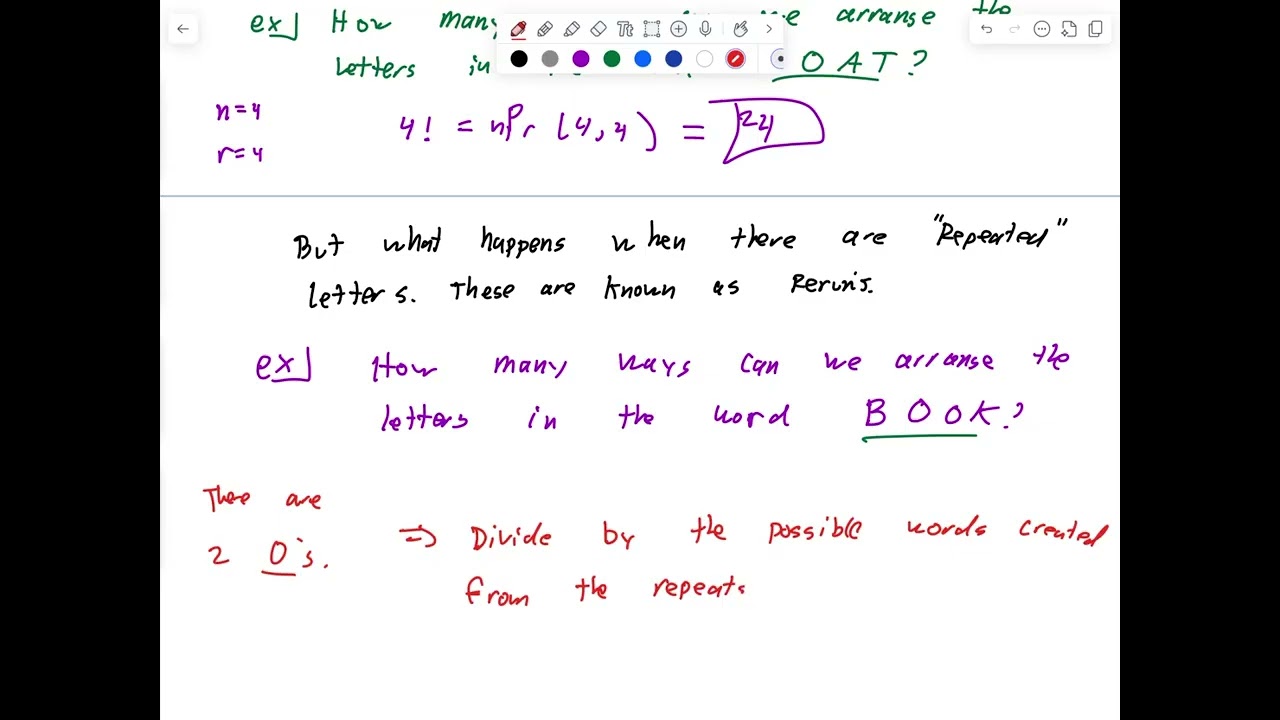 ex] How many we arrange the
letters in OAT?
n=4
4! = nPr (4,4) = 24
r=4
But what happens when there are "Repeated"
letters. These are known as Reruns.
ex] How many ways can we arrange the
letters in the word BOOK?
There are
2 O's.
=> Divide by the possible words created
from the repeats